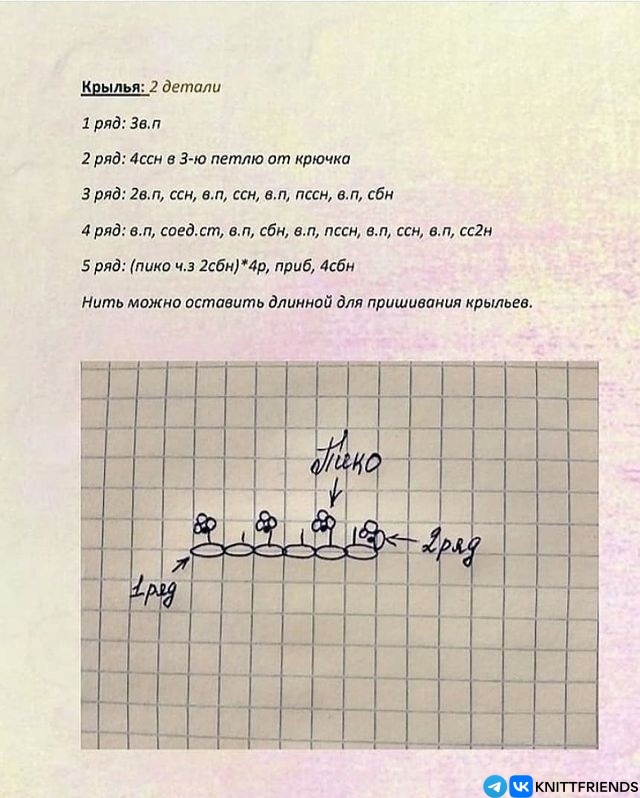 Крылья: 2 детали
1 ряд: 3в.п
2 ряд: 4ссн в 3-ю петлю от крючка
3 ряд: 2в.п, ссн, в.п, ссн, в.п, пссн, в.п, сбн
4 ряд: в.п, соед.ст, в.п, сбн, в.п, пссн, в.п, ссн, в.п, сс2н
5 ряд: (пико ч.з 2сбн)*4р, приб, 4сбн
Нить можно оставить длинной для пришивания крыльев.
Пико
2 ряд
1 ряд
KNITTFRIENDS